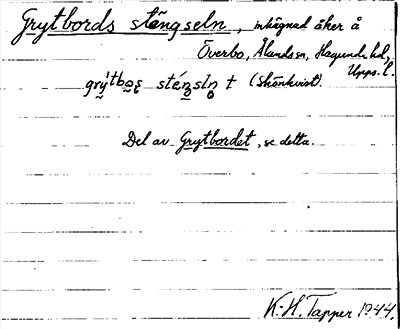 Grytbords stängseln, inhägnad åker å
Överbo, Ålands sn, Hagunda hd,
Upps. l.
(Skönkvist).
Del av Grytbordet, se detta.
K.-H. Tapper 1944.